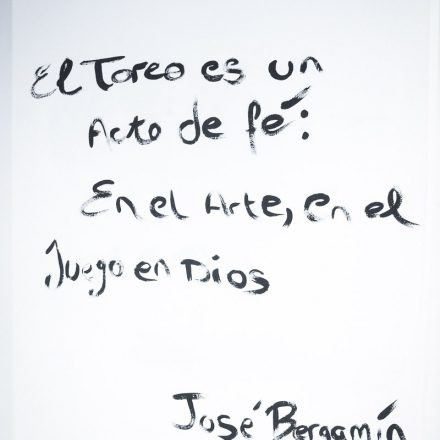 El Toreo es un
Acto de fé:
En el Arte, en el
Juego en Dios
José Bergamín